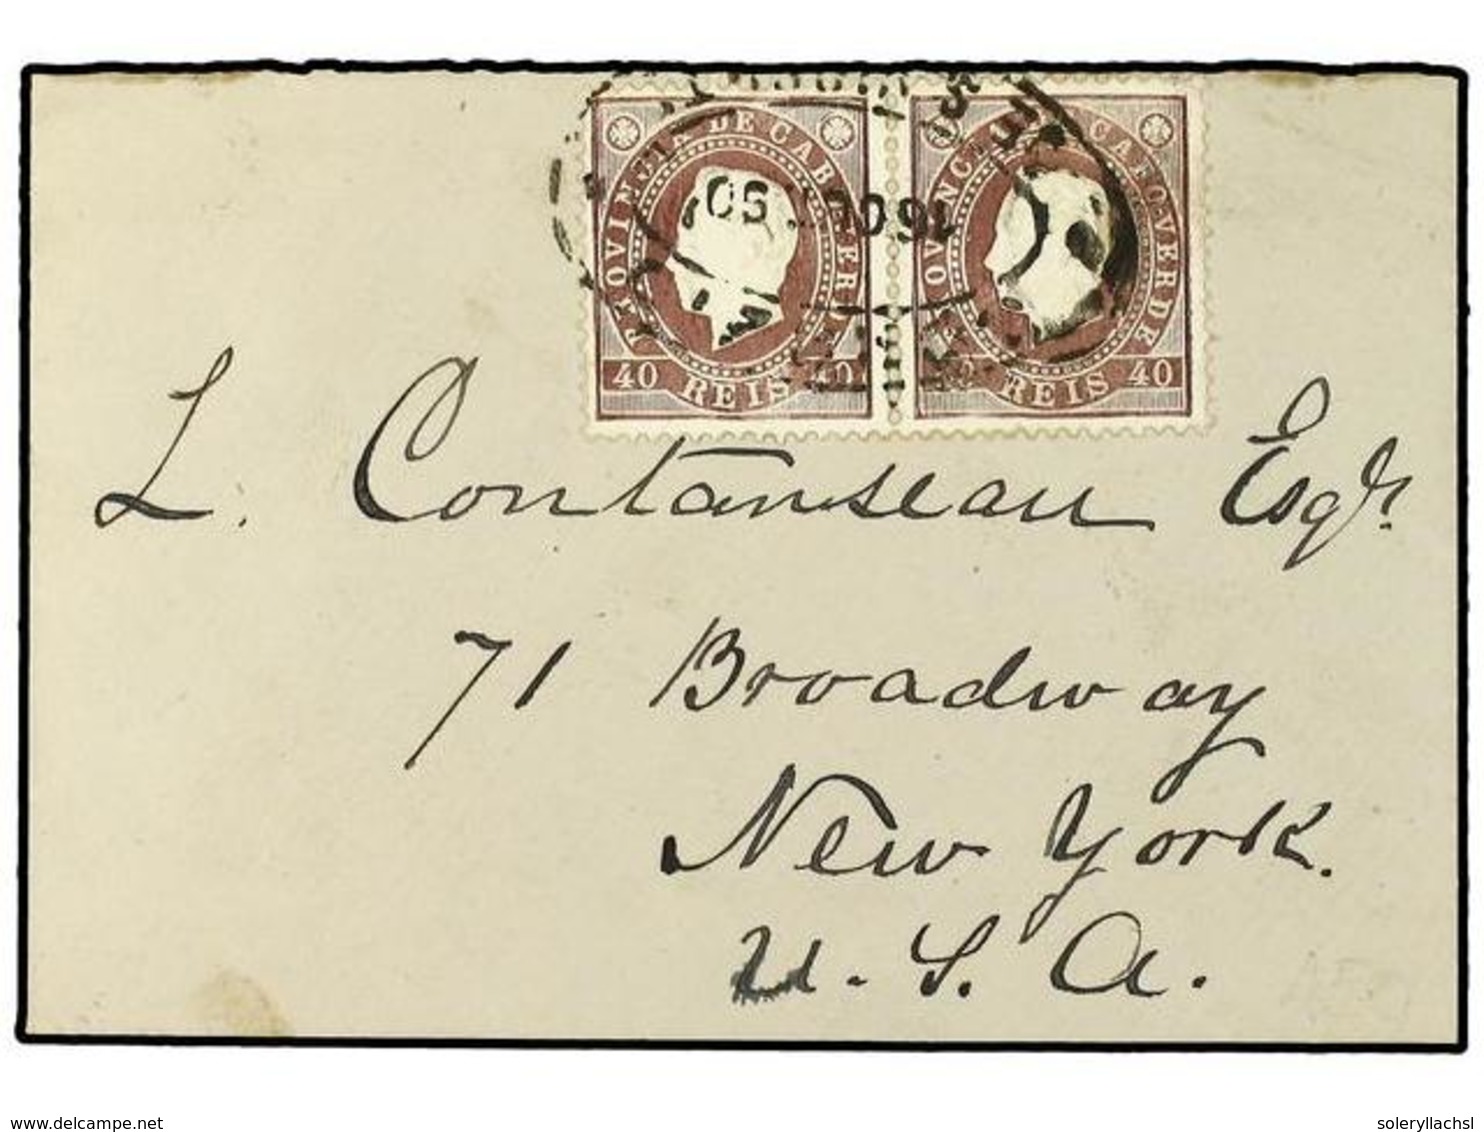 PROVINCIA DE CABO VERDE
40 REIS 40
PROVINCIA DE CABO-VERDE
REIS 40
L. Contanseau Esqr.
71 Broadway
New York.
U. S. A.
www.delcampe.net
soleryllachsl